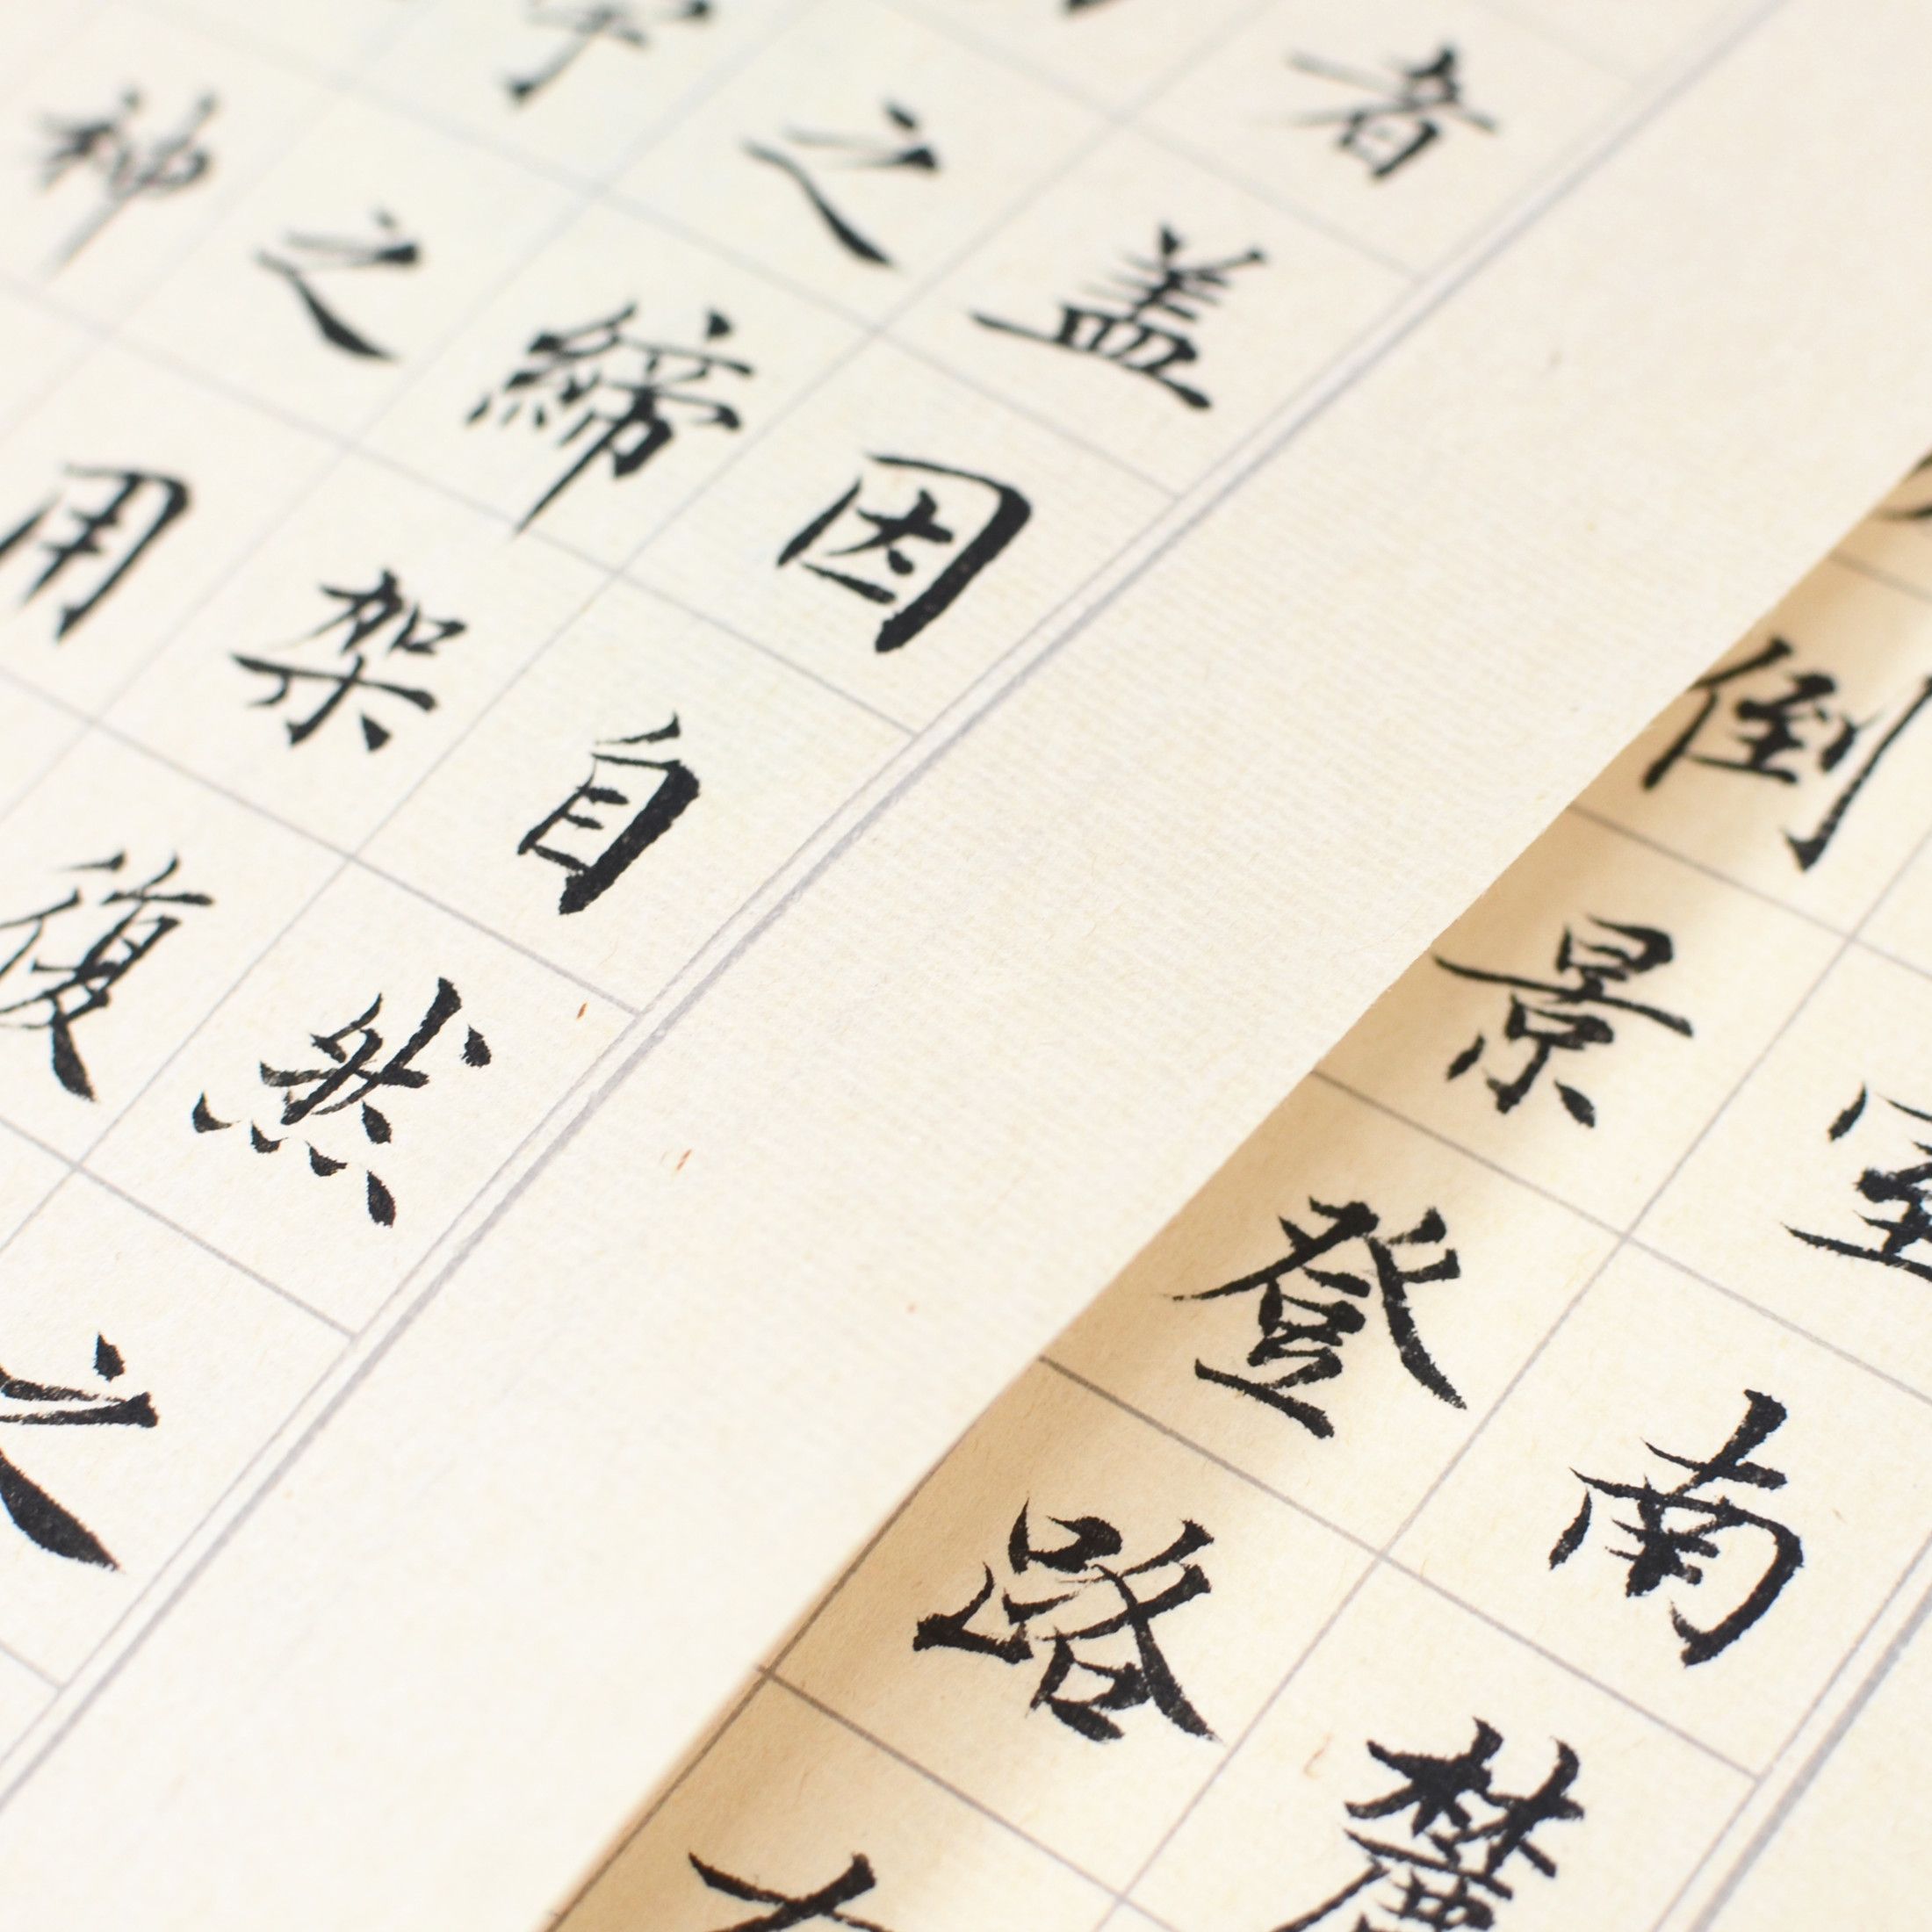 室南麓
倒景登路
者盖因自然之
之締架復
之用
神